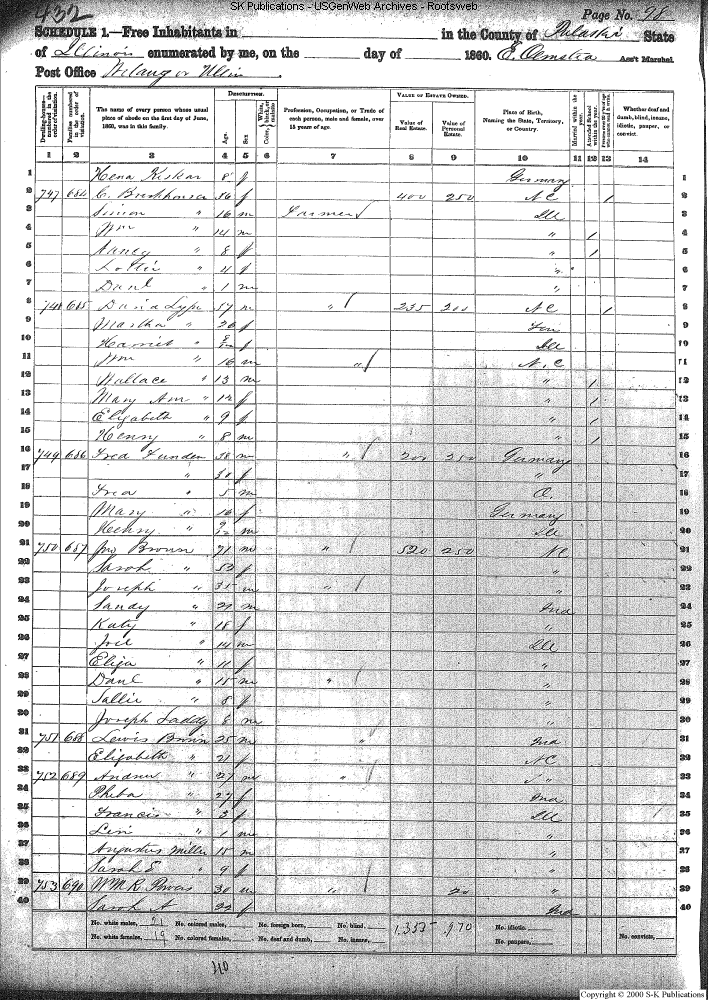 SK Publications - USGenWeb Archives - Rootsweb
432
Page No. 98
SCHEDULE 1.—Free Inhabitants in in the County of Pulaski State
of Illinois enumerated by me, on the day of 1860. E. Olmsted Ass't Marshal.
Post Office
Dwelling-houses numbered in the order of visitation. Families numbered in the order of visitation. The name of every person whose usual place of abode on the first day of June, 1860, was in this family. DESCRIPTION. Age. Sex. Color, White, black, or mulatto. Profession, Occupation, or Trade of each person, male and female, over 15 years of age. VALUE OF ESTATE OWNED. Value of Real Estate. Value of Personal Estate. Place of Birth, Naming the State, Territory, or Country. Married within the year. Attended School within the year. Whether deaf and dumb, blind, insane, idiotic, pauper, or convict.
1 2 3 4 5 6 7 8 9 10 11 12 13 14
1 8 f Germany 1
2 747 684 C. 56 f 400 250 N C / 2
3 Simon " 16 m Farmer / Ill 3
4 Wm " 14 m " / 4
5 Nancy " 8 f " / 5
6 Lottie " 4 f " 6
7 Danl " 1 m " 7
8 748 685 David Lype 57 m " / 235 200 N C / 8
9 Martha " 26 f Ten 9
10 Harriet " f Ill 10
11 Wm " 16 m " / N. C 11
12 Wallace " 13 m " / 12
13 Mary Ann " 12 f " / 13
14 Elizabeth " 9 f " / 14
15 Henry " 8 m " / 15
16 749 686 Fred 38 m " / 200 250 Germany 16
17 " 30 f " 17
18 Fred " 5 m O. 18
19 Mary " 16 f Germany 19
20 Henry " 9/12 m Ill 20
21 750 687 Jno Brown 71 m " / 520 250 N C 21
22 Sarah " 53 f " 22
23 Joseph " 35 m " / " 23
24 Sandy " 21 m Ind 24
25 Katy " 18 f " 25
26 Joel " 14 m Ill 26
27 Eliza " 11 f " 27
28 Danl " 15 m " " 28
29 Sallie " 8 f " 29
30 Joseph 8 m " 30
31 751 688 Lewis Brown 25 m " Ind 31
32 Elizabeth " 21 f N C 32
33 752 689 Andrew " 27 m " / " 33
34 Pheba " 27 f Ind 34
35 Francis " 3 f Ill 35
36 Levi " 1 m " 36
37 Augustus Miller 15 m " 37
38 Sarah E " 9 f " 38
39 753 690 WM R. Powers 30 m " / 20 " 39
40 Sarah A 22 f Ind 40
No. white males, 21 No. colored males, No. foreign born, No. blind, 1,355 970 No. idiotic, No. convicts,
No. white females, 19 No. colored females, No. deaf and dumb, No. insane, No. paupers,
Copyright © 2000 S-K Publications